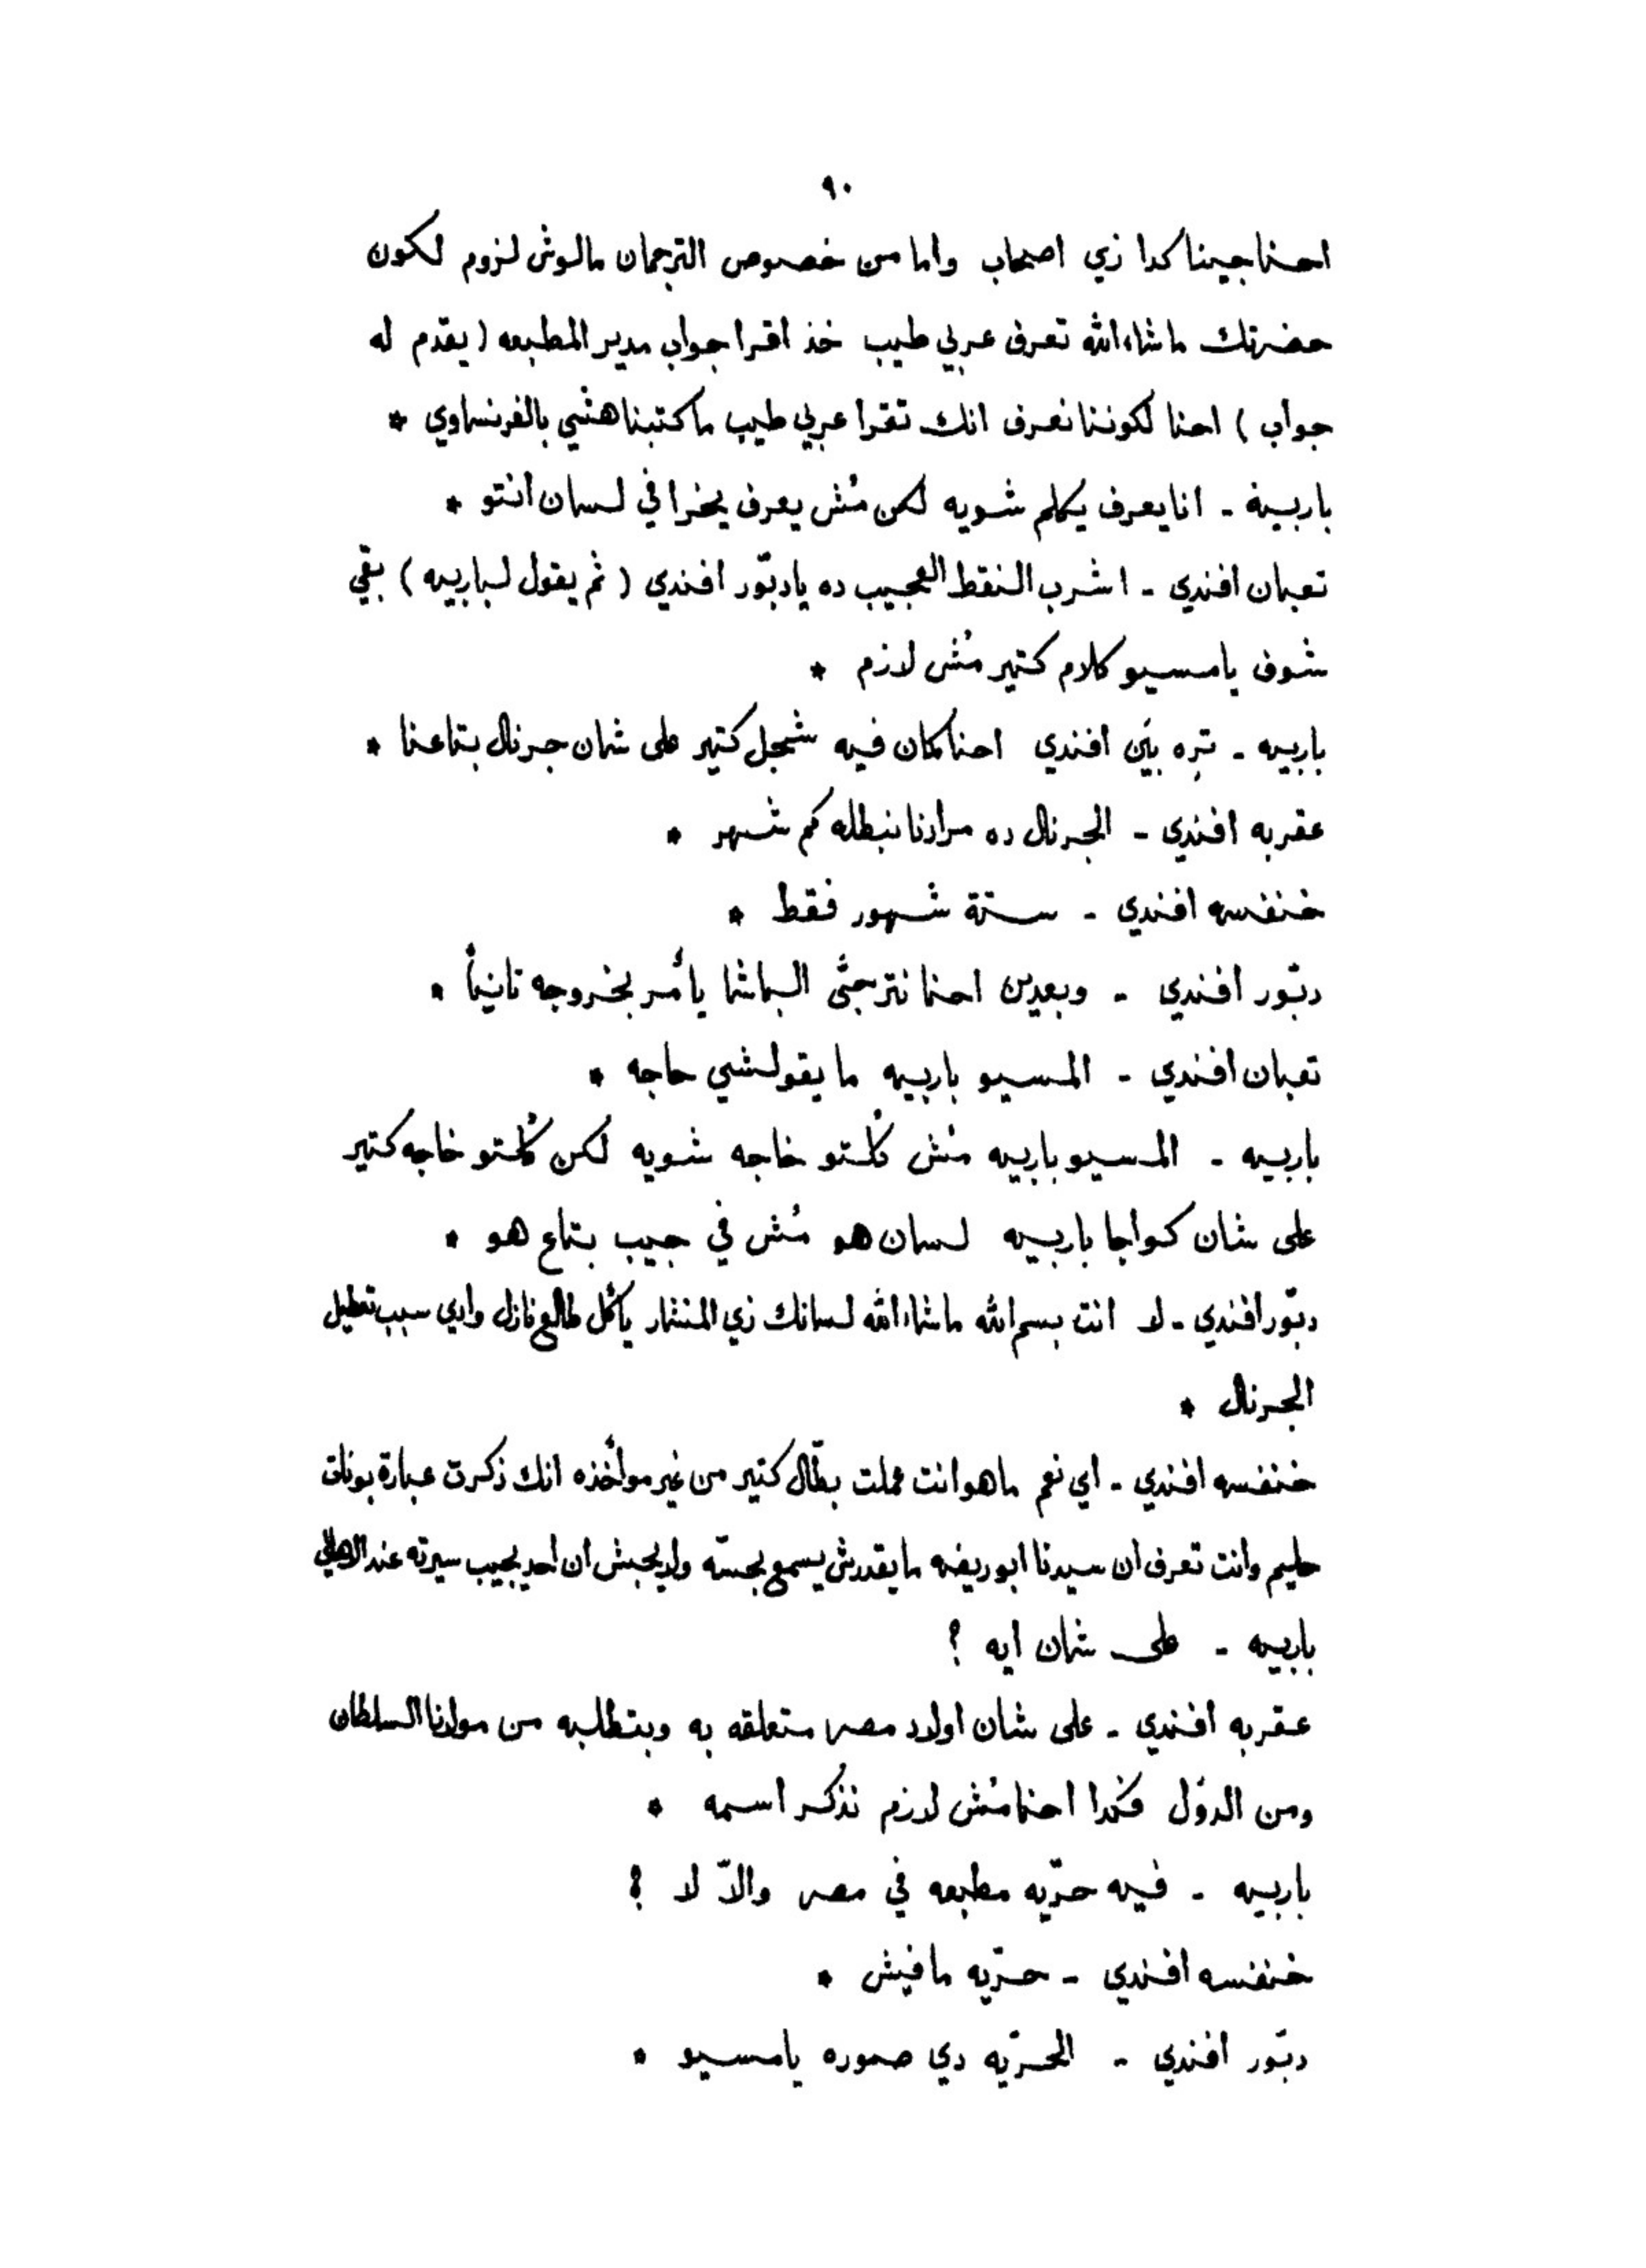 ٩٠
احنا جينا كدا زي اصحاب واما من خصوص الترجمان مالوش لزوم لكون
حضرتك ماشاءالله تعرف عربي طيب خذ اقرا جواب مدير المطبعه ( يقدّم له
جواب ) احنا لكوننا نعرف انك تقرا عربي طيب ما كتبناهشي بالفرنساوي *
باربييه - انا يعرف يكلم شويه لكن مُش يعرف يخرا في لسان انتو *
تعبان افندي - اشرب النقط العجيب ده يا دبّور افندي ( ثم يقول لباربيه ) بقي
شوف يا مسيو كلام كتير مُش لازم *
باربيه - تِره بيَن افندي احنا كمان فيه شجل كتير على شان جرنال بتاعنا *
عقربه افندي - الجرنال ده مرادنا نبطله كم شهر *
خنفسه افندي - ستة شهور فقط *
دبّور افندي - وبعدين احنا نترجّى الباشا يأمر بخروجه تانياً *
تعبان افندي - المسيو باربيه ما يقولشي حاجه *
باربيه - المسيو باربيه مُش كُلتو خاجه شويه لكن كُلتو خاجه كتير
على شان كواجا باربيه لسان هو مُش في جيب بتاع هو *
دبّور افندي - لا انت بسم الله ماشاءالله لسانك زي المنشار يأكل طالع نازل وادي سبب تعطيل
الجرنال *
خنفسه افندي - اي نعم ماهو انت عملت بطّال كتير من غير مواخذه انك ذكرت عبارة بونات
حليم وانت تعرف ان سيدنا ابو ريضه ما يقدرش يسمع بحسّه ولا يحبش ان احد يجيب سيرته عند الاهالي
باربيه - على شان ايه ؟
عقربه افندي - على شان اولاد مصر متعلقه به وبتطلبه من مولانا السلطان
ومن الدوَل فكدا احنا مُش لازم نذكُر اسمه *
باربيه - فيه حرّيه مطبعه في مصر والاّ لا ؟
خنفسه افندي - حرّيه مافيش *
دبّور افندي - الحرّيه دي صوره يا مسيو *